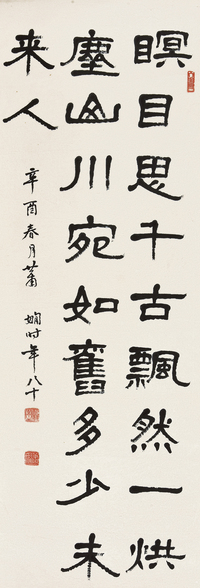 瞑目思千古飄然一烘
塵山川宛如舊多少未
来人
辛酉春月蕭嫻时年八十